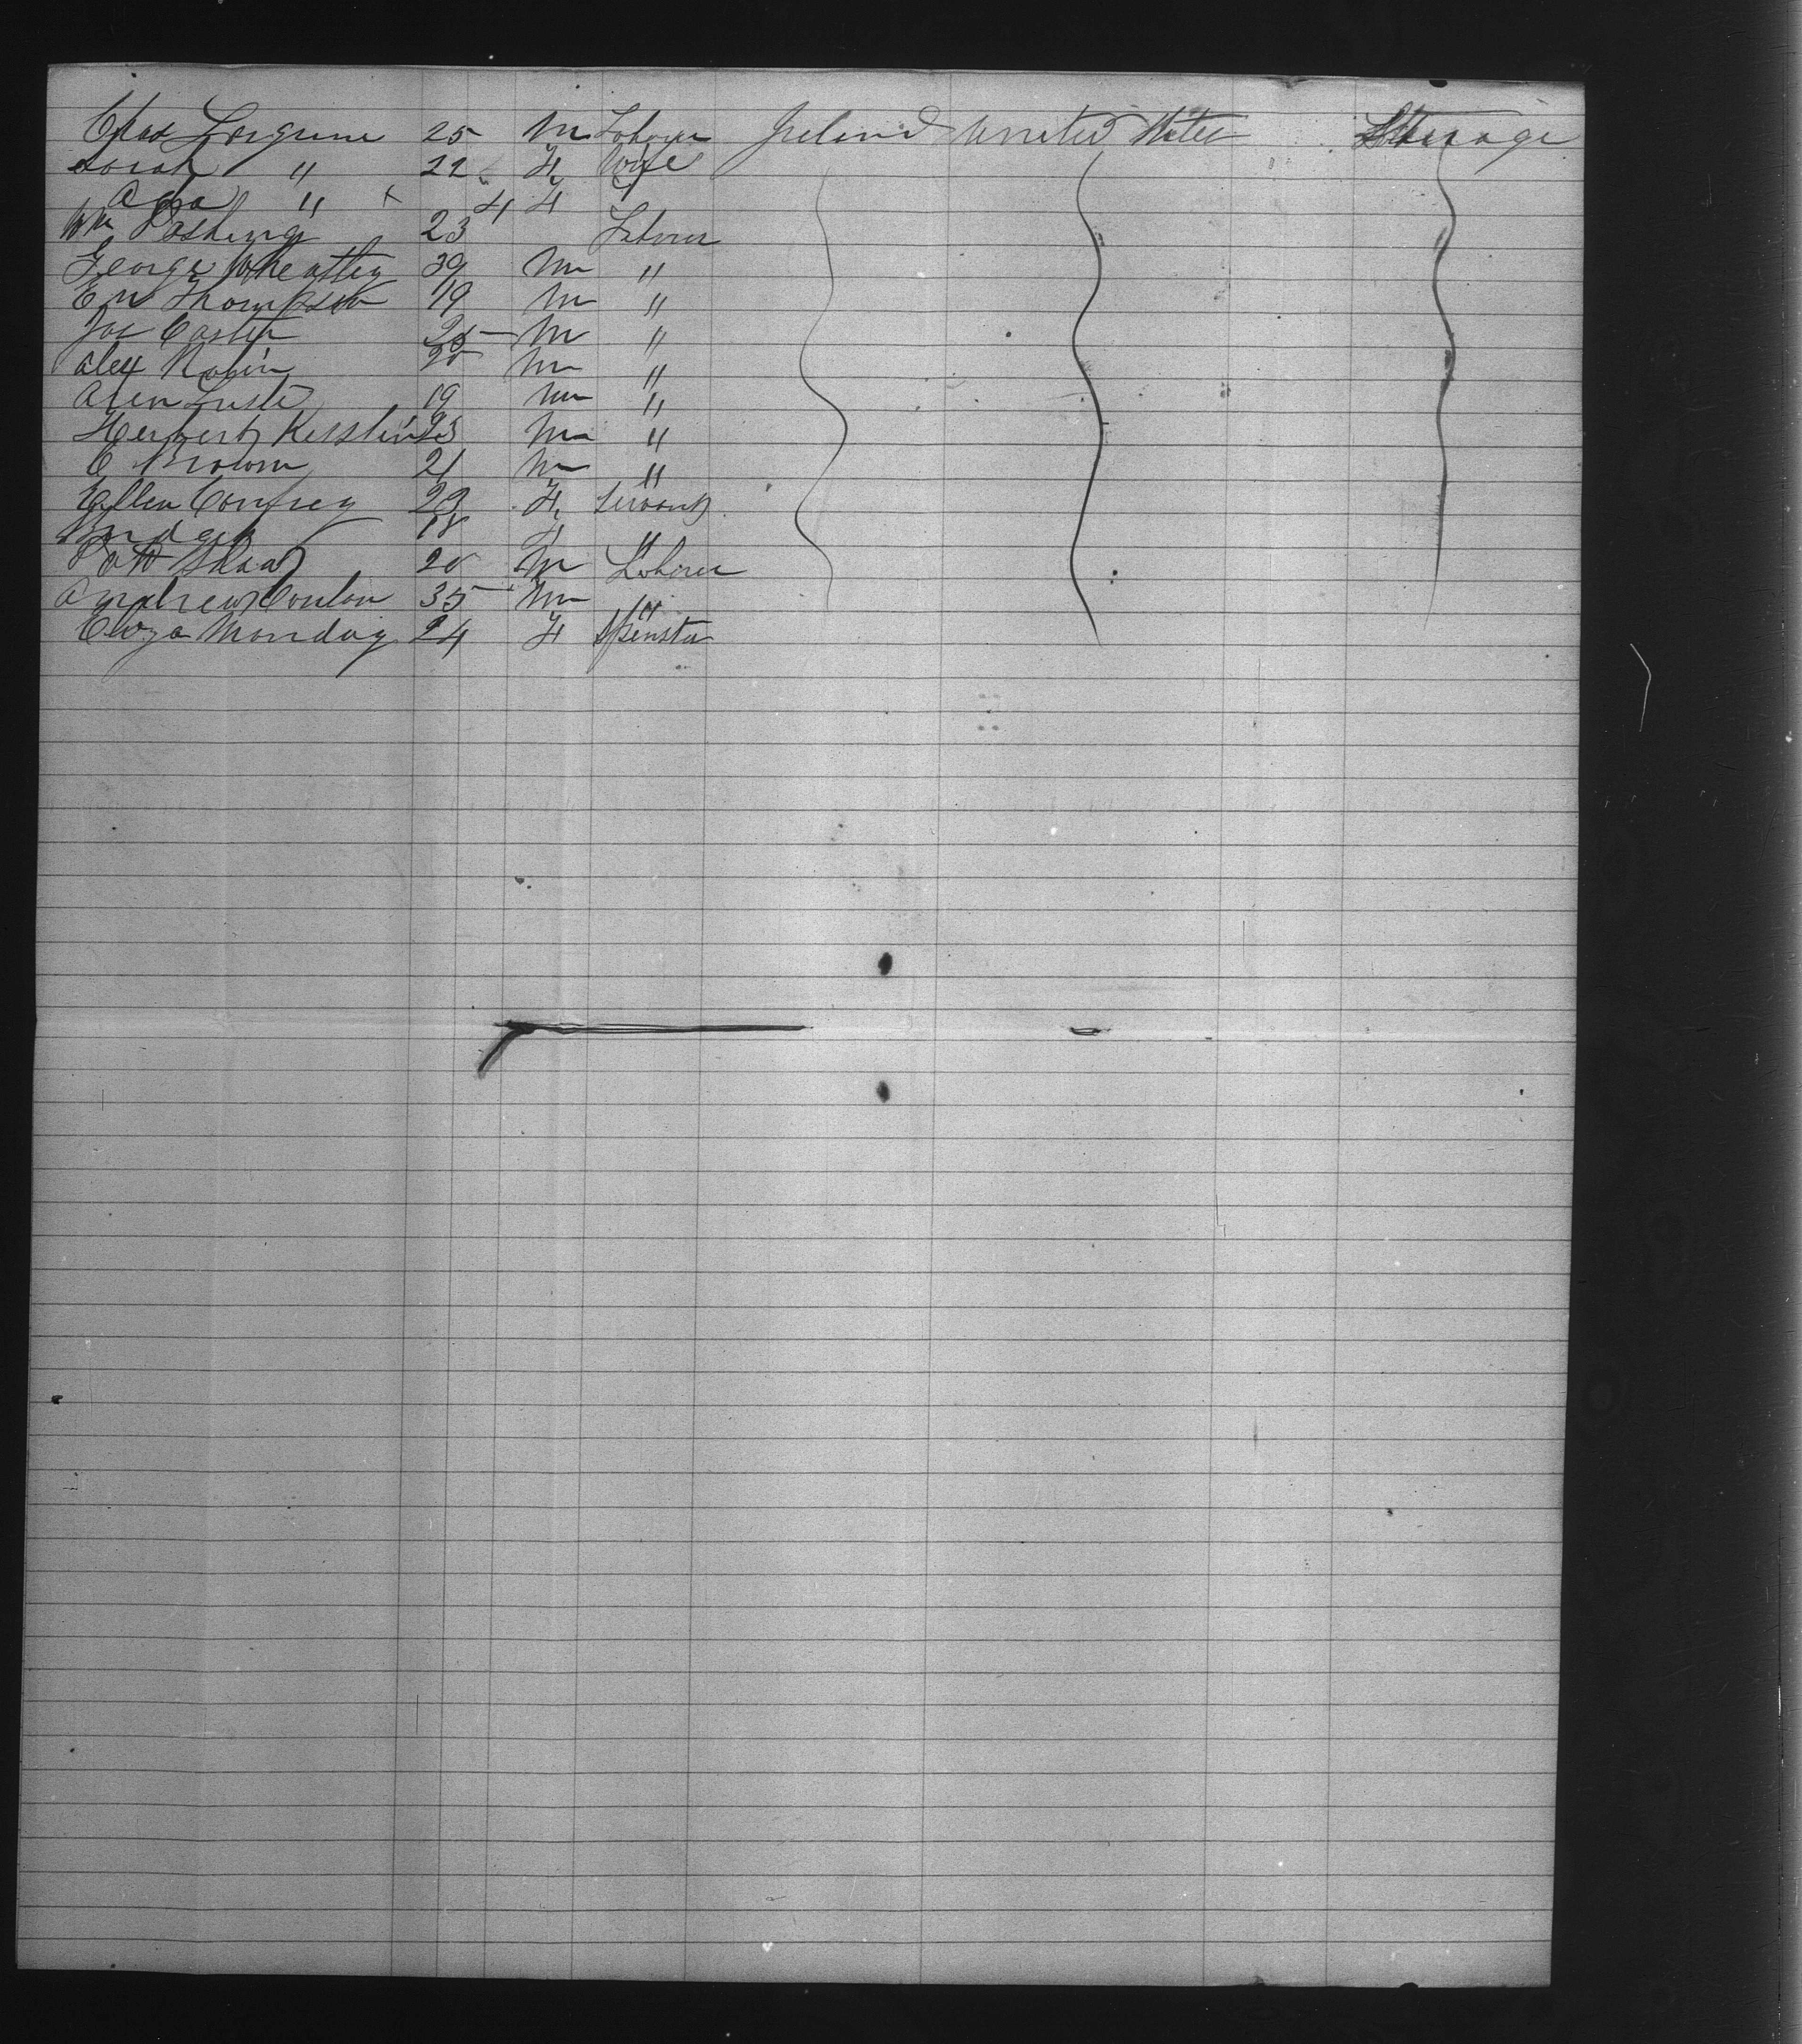 Chas 25 M Laborer Ireland United States Steerage
Sarah " 22 F Wife
Ada " 4 F
Wm 23 Laborer
George Wheatley 39 M "
Em Thompson 19 M "
Jos Carter 25 M "
Alex 20 M "
19 M "
Herbert 23 M "
C Brown 21 M "
Ellen Confrey 23 F Servant
Bridget 18 F "
Patt Shea 20 M Laborer
Andrew Conlon 35 M "
Eliza Monday 24 F Spinster